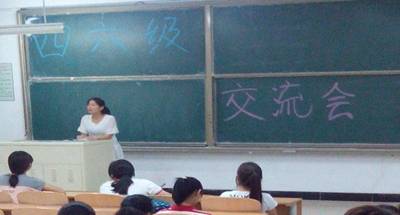 四六级
交流会